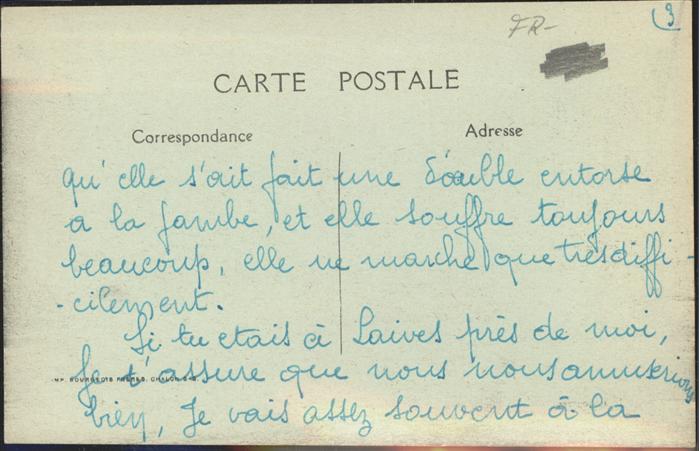 3
FR-
CARTE POSTALE
Correspondance
Adresse
qu'elle s'ait fait une double entorse
a la jambe, et elle souffre toujours
beaucoup, elle ne marche que très diffi-
-cilement.
Si tu etais à Laives près de moi,
Je t'assure que nous nous amuserions
IMP. BOURGEOIS FRÈRES, CHALON-S-S.
bien, Je vais assez souvent à la